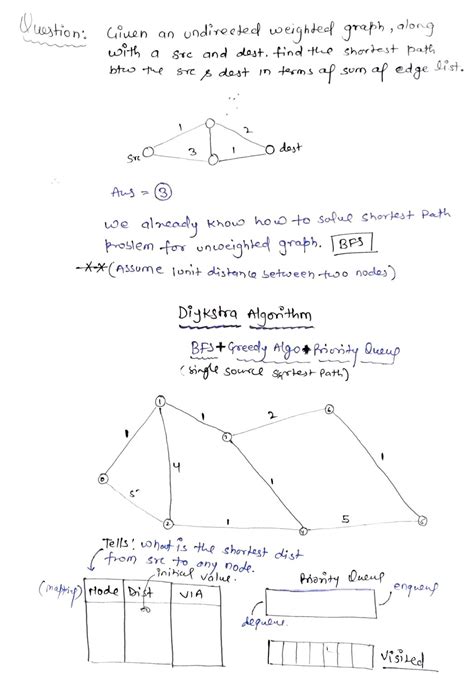 Question: Given an undirected weighted graph, along
with a src and dest. find the shortest path
btw the src & dest in terms of sum of edge list.
1
2
src
3
1
dest
Ans = 3
we already know how to solve shortest Path
problem for unweighted graph. BFS
-X-X-(Assume 1unit distance between two nodes)
Diykstra Algorithm
BFS + Greedy Algo + Priority Queue
(single source shortest Path)
1
6
1
1
2
3
0
4
1
1
5
2
1
4
5
5
Tells! what is the shortest dist
from src to any node.
initial value.
Priority Queue
enqueue
(mapping)
Node
Dist
VIA
∞
dequeue
Visited